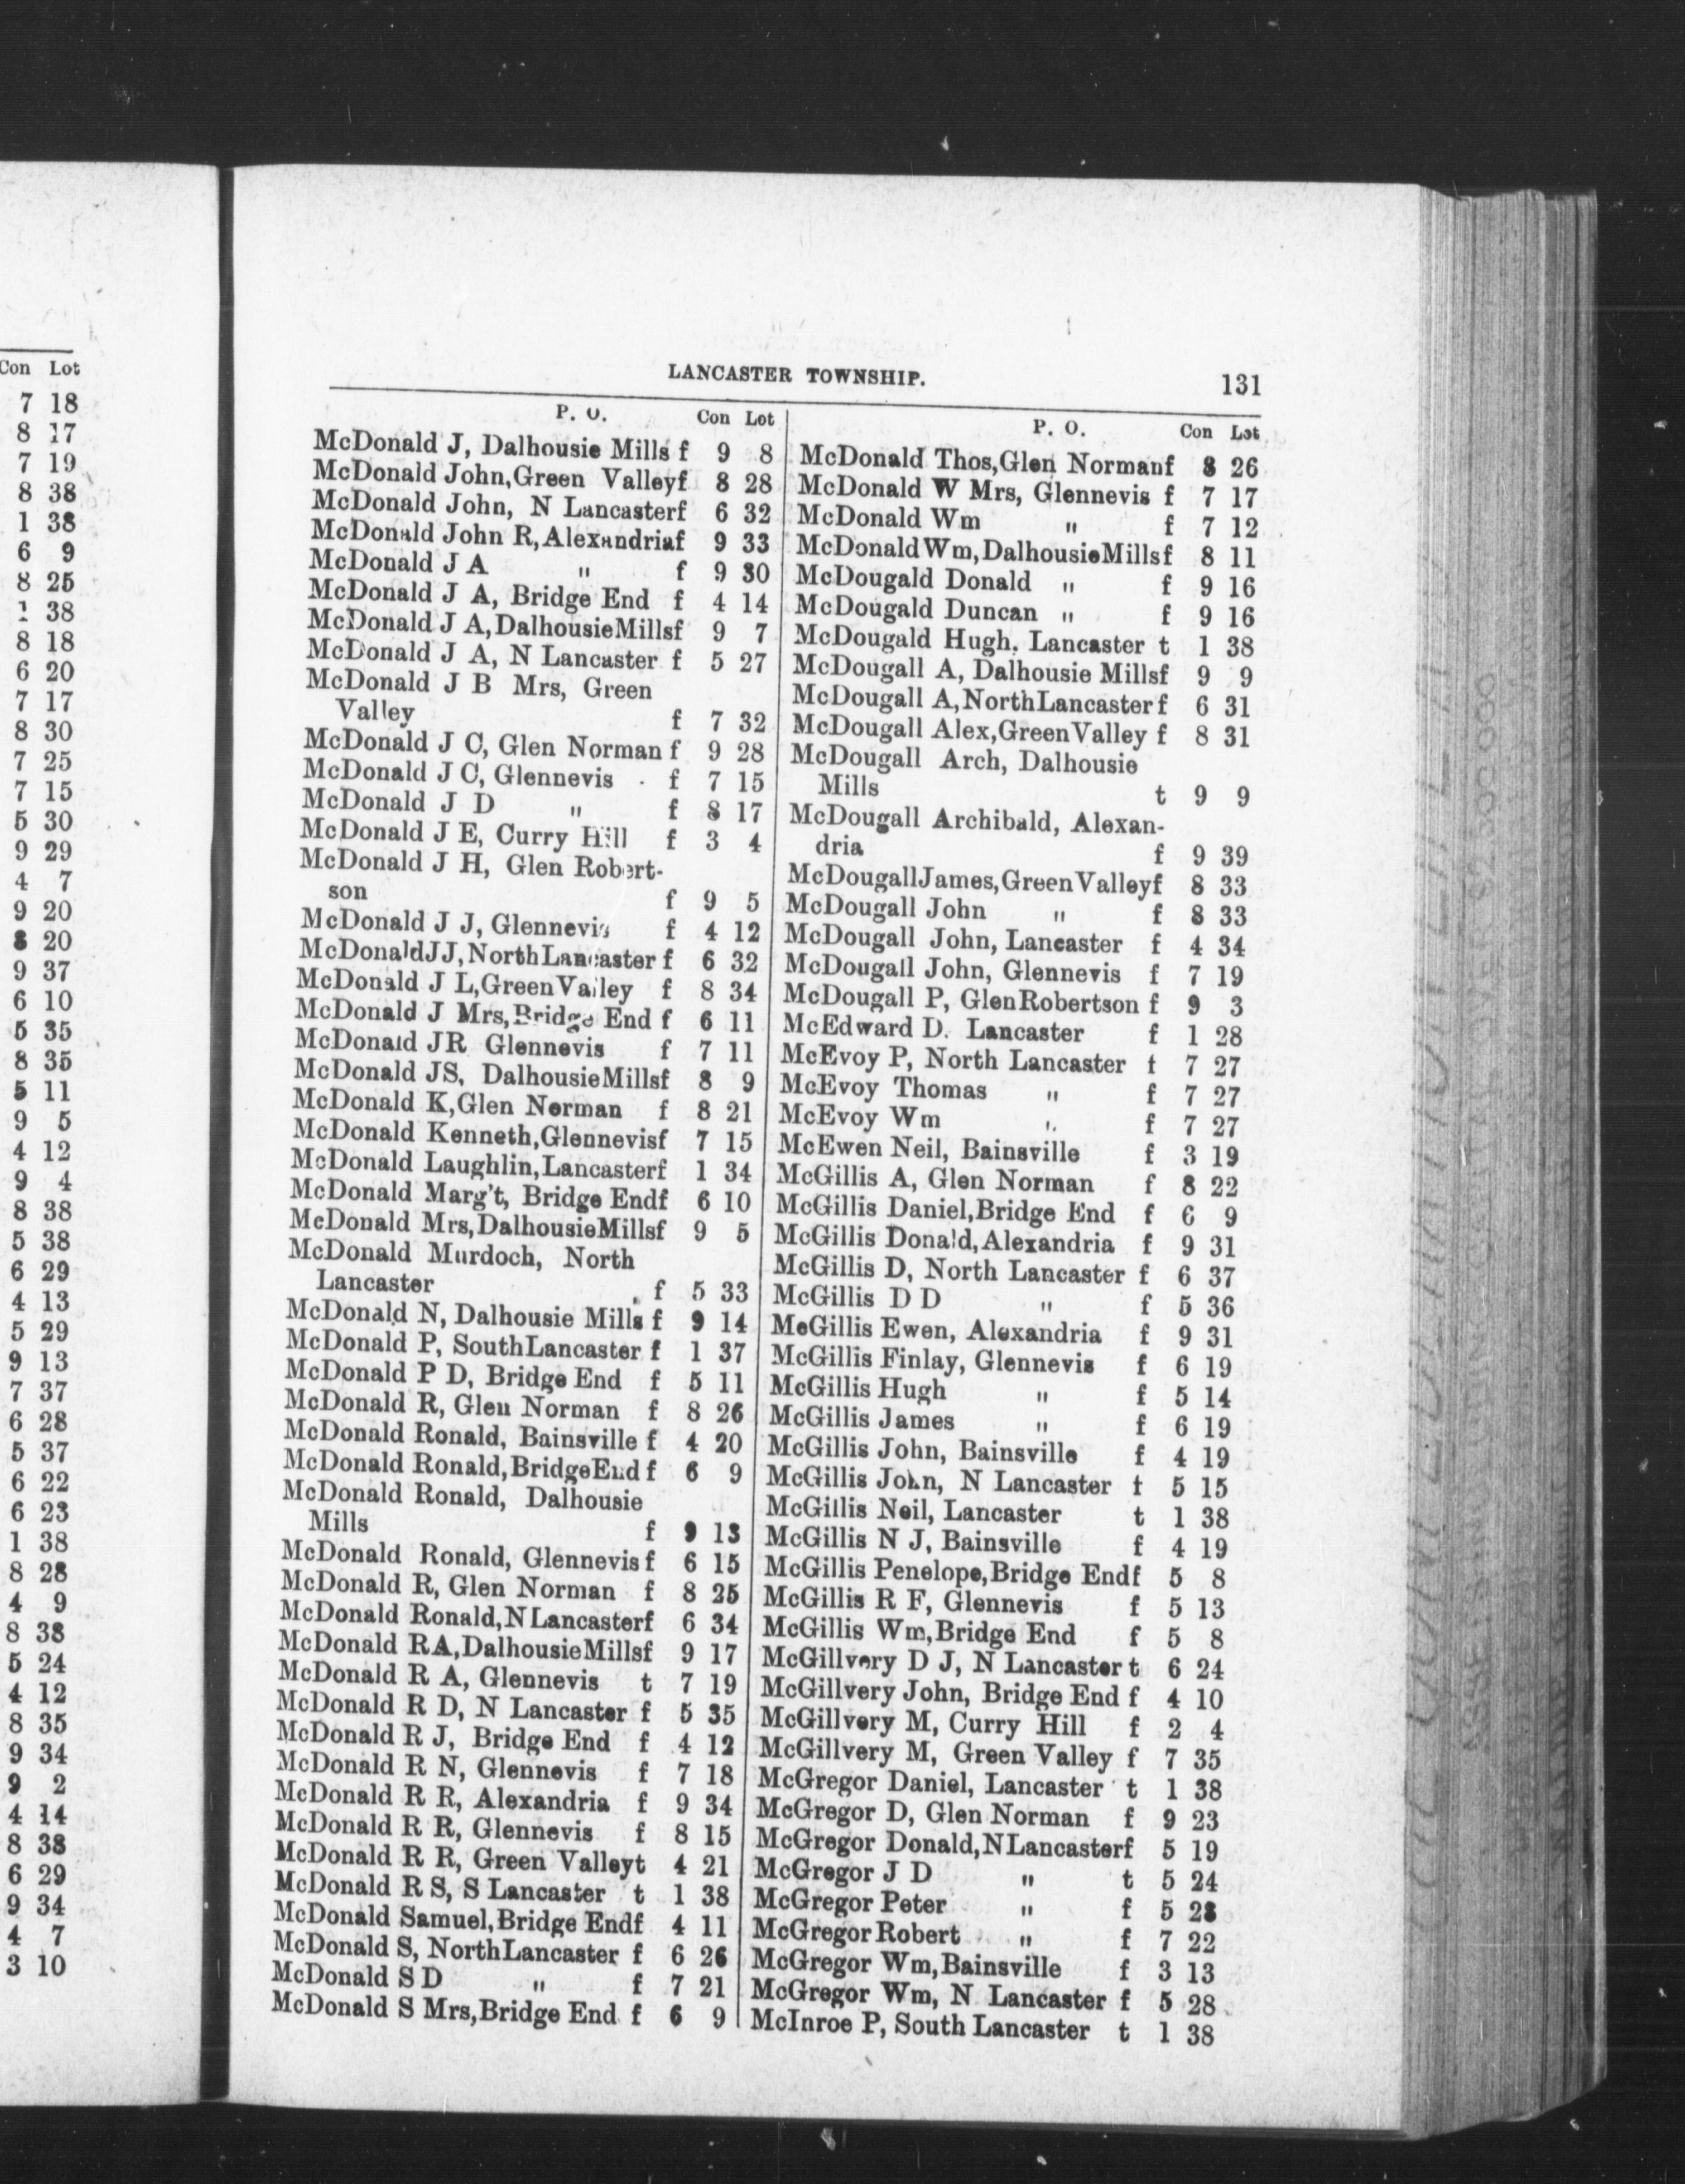 Con Lot
7 18
8 17
7 19
8 38
1 38
6 9
8 25
1 38
8 18
6 20
7 17
8 30
7 25
7 15
5 30
9 29
4 7
9 20
8 20
9 37
6 10
5 35
8 35
5 11
9 5
4 12
9 4
8 38
5 38
6 29
4 13
5 29
9 13
7 37
6 28
5 37
6 22
6 23
1 38
8 28
4 9
8 38
5 24
4 12
8 35
9 34
9 2
4 14
8 38
6 29
9 34
4 7
3 10
LANCASTER TOWNSHIP. 131
P. O. Con Lot
McDonald J, Dalhousie Mills f 9 8
McDonald John, Green Valley f 8 28
McDonald John, N Lancaster f 6 32
McDonald John R, Alexandria f 9 33
McDonald J A " f 9 30
McDonald J A, Bridge End f 4 14
McDonald J A, Dalhousie Mills f 9 7
McDonald J A, N Lancaster f 5 27
McDonald J B Mrs, Green
Valley f 7 32
McDonald J C, Glen Norman f 9 28
McDonald J C, Glennevis f 7 15
McDonald J D " f 8 17
McDonald J E, Curry Hill f 3 4
McDonald J H, Glen Robert-
son f 9 5
McDonald J J, Glennevis f 4 12
McDonald J J, North Lancaster f 6 32
McDonald J L, Green Valley f 8 34
McDonald J Mrs, Bridge End f 6 11
McDonald JR Glennevis f 7 11
McDonald JS, Dalhousie Mills f 8 9
McDonald K, Glen Norman f 8 21
McDonald Kenneth, Glennevis f 7 15
McDonald Laughlin, Lancaster f 1 34
McDonald Marg't, Bridge End f 6 10
McDonald Mrs, Dalhousie Mills f 9 5
McDonald Murdoch, North
Lancaster f 5 33
McDonald N, Dalhousie Mills f 9 14
McDonald P, South Lancaster f 1 37
McDonald P D, Bridge End f 5 11
McDonald R, Glen Norman f 8 26
McDonald Ronald, Bainsville f 4 20
McDonald Ronald, Bridge End f 6 9
McDonald Ronald, Dalhousie
Mills f 9 13
McDonald Ronald, Glennevis f 6 15
McDonald R, Glen Norman f 8 25
McDonald Ronald, N Lancaster f 6 34
McDonald RA, Dalhousie Mills f 9 17
McDonald R A, Glennevis t 7 19
McDonald R D, N Lancaster f 5 35
McDonald R J, Bridge End f 4 12
McDonald R N, Glennevis f 7 18
McDonald R R, Alexandria f 9 34
McDonald R R, Glennevis f 8 15
McDonald R R, Green Valley t 4 21
McDonald R S, S Lancaster t 1 38
McDonald Samuel, Bridge End f 4 11
McDonald S, North Lancaster f 6 26
McDonald S D " f 7 21
McDonald S Mrs, Bridge End f 6 9
P. O. Con Lot
McDonald Thos, Glen Norman f 8 26
McDonald W Mrs, Glennevis f 7 17
McDonald Wm " f 7 12
McDonald Wm, Dalhousie Mills f 8 11
McDougald Donald " f 9 16
McDougald Duncan " f 9 16
McDougald Hugh, Lancaster t 1 38
McDougall A, Dalhousie Mills f 9 9
McDougall A, North Lancaster f 6 31
McDougall Alex, Green Valley f 8 31
McDougall Arch, Dalhousie
Mills t 9 9
McDougall Archibald, Alexan-
dria f 9 39
McDougall James, Green Valley f 8 33
McDougall John " f 8 33
McDougall John, Lancaster f 4 34
McDougall John, Glennevis f 7 19
McDougall P, Glen Robertson f 9 3
McEdward D. Lancaster f 1 28
McEvoy P, North Lancaster t 7 27
McEvoy Thomas " f 7 27
McEvoy Wm " f 7 27
McEwen Neil, Bainsville f 3 19
McGillis A, Glen Norman f 8 22
McGillis Daniel, Bridge End f 6 9
McGillis Donald, Alexandria f 9 31
McGillis D, North Lancaster f 6 37
McGillis D D " f 5 36
McGillis Ewen, Alexandria f 9 31
McGillis Finlay, Glennevis f 6 19
McGillis Hugh " f 5 14
McGillis James " f 6 19
McGillis John, Bainsville f 4 19
McGillis John, N Lancaster t 5 15
McGillis Neil, Lancaster t 1 38
McGillis N J, Bainsville f 4 19
McGillis Penelope, Bridge End f 5 8
McGillis R F, Glennevis f 5 13
McGillis Wm, Bridge End f 5 8
McGillvery D J, N Lancaster t 6 24
McGillvery John, Bridge End f 4 10
McGillvery M, Curry Hill f 2 4
McGillvery M, Green Valley f 7 35
McGregor Daniel, Lancaster t 1 38
McGregor D, Glen Norman f 9 23
McGregor Donald, N Lancaster f 5 19
McGregor J D " t 5 24
McGregor Peter " f 5 28
McGregor Robert " f 7 22
McGregor Wm, Bainsville f 3 13
McGregor Wm, N Lancaster f 5 28
McInroe P, South Lancaster t 1 38